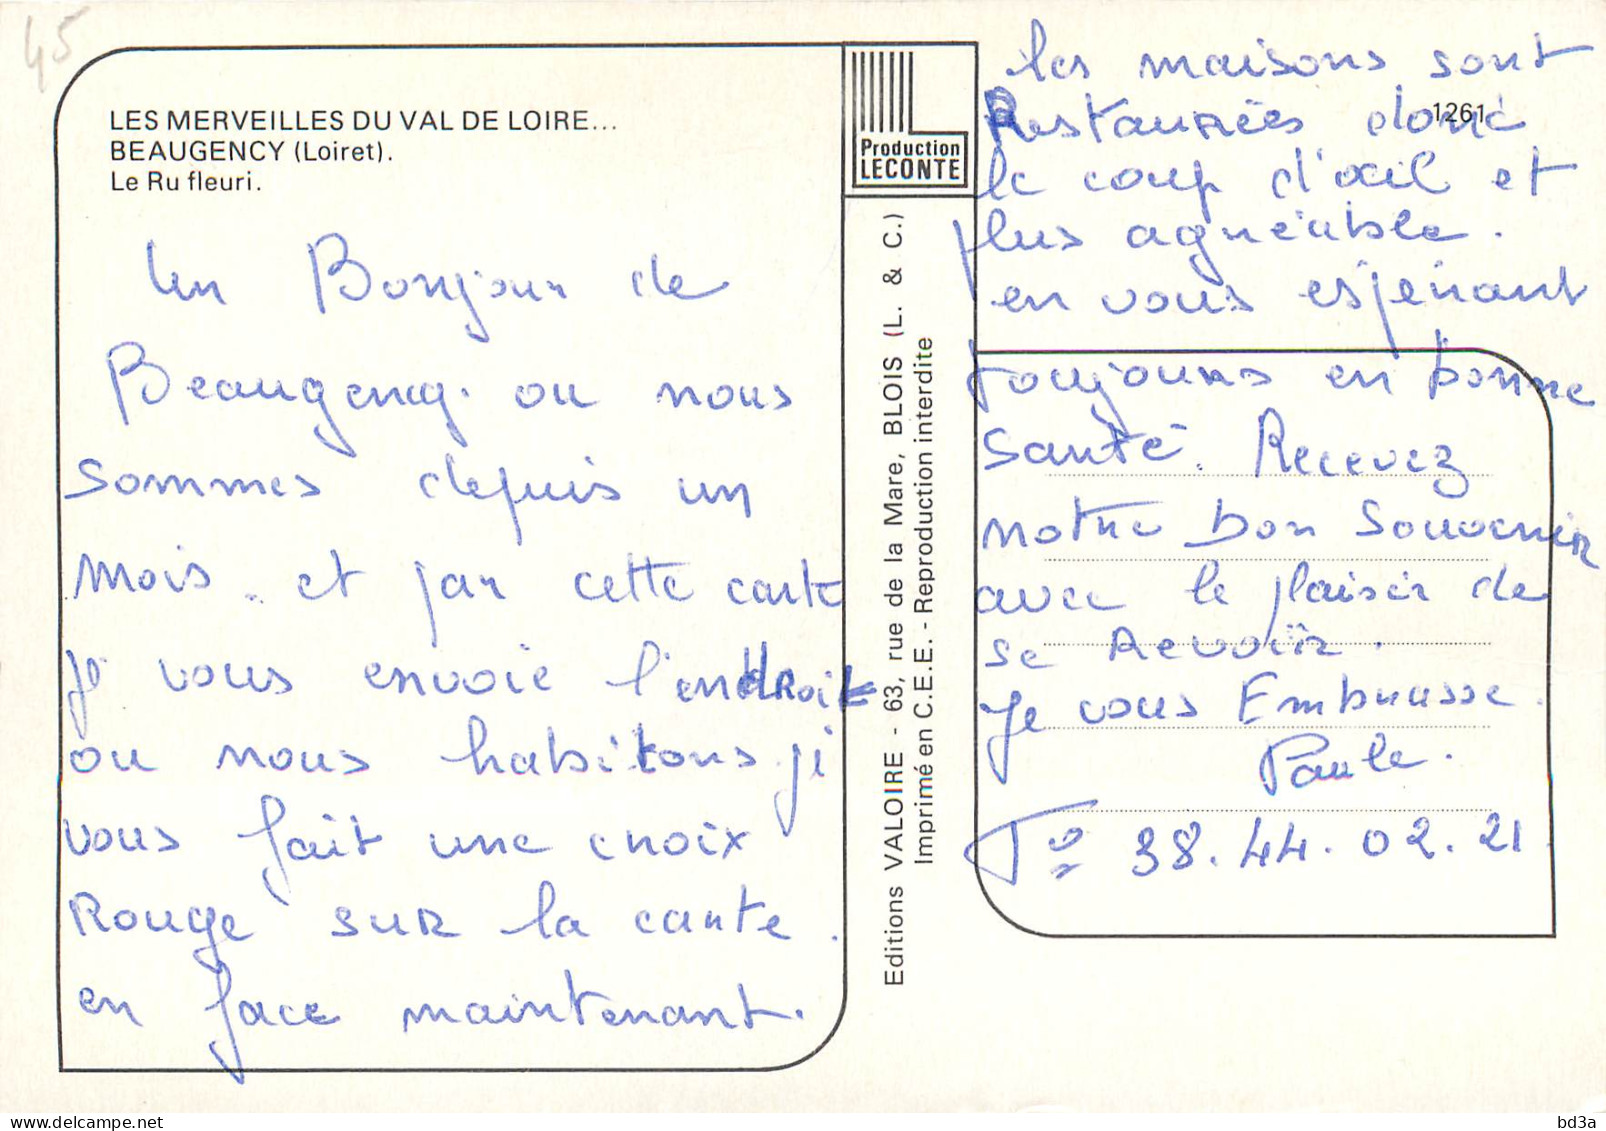 45
LES MERVEILLES DU VAL DE LOIRE...
BEAUGENCY (Loiret).
Le Ru fleuri.
Un Bonjour de
Beaugency. ou nous
sommes depuis un
mois. et par cette carte
je vous envoie l'endroit
ou nous habitons. je
vous fait une croix
Rouge sur la carte.
en face maintenant.
Production
LECONTE
Editions VALOIRE - 63, rue de la Mare, BLOIS (L. & C.)
Imprimé en C.E.E. - Reproduction interdite
1261
les maisons sont
Restaurées donc
le coup d'oeil et
plus agréable.
en vous espérant
toujours en bonne
santé. Recevez
notre bon souvenir
avec le plaisir de
se revoir.
Je vous Embrasse.
Paule.
Tº 38.44.02.21.
delcampe.net
bd3a